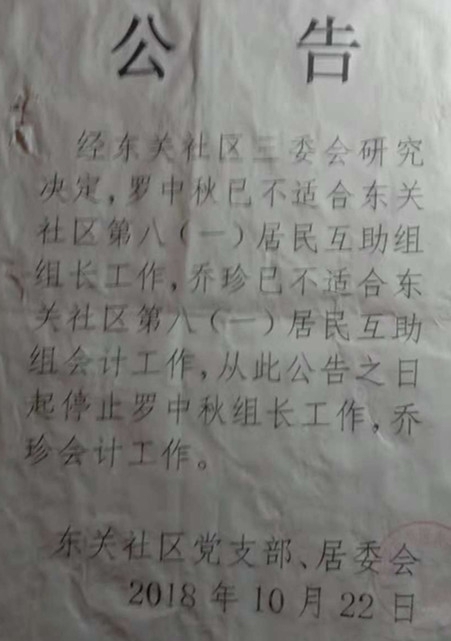 公 告
经东关社区三委会研究
决定，罗中秋已不适合东关
社区第八（一）居民互助组
组长工作，乔珍已不适合东
关社区第八（一）居民互助
组会计工作，从此公告之日
起停止罗中秋组长工作，乔
珍会计工作。
东关社区党支部、居委会
2018 年 10 月 22 日